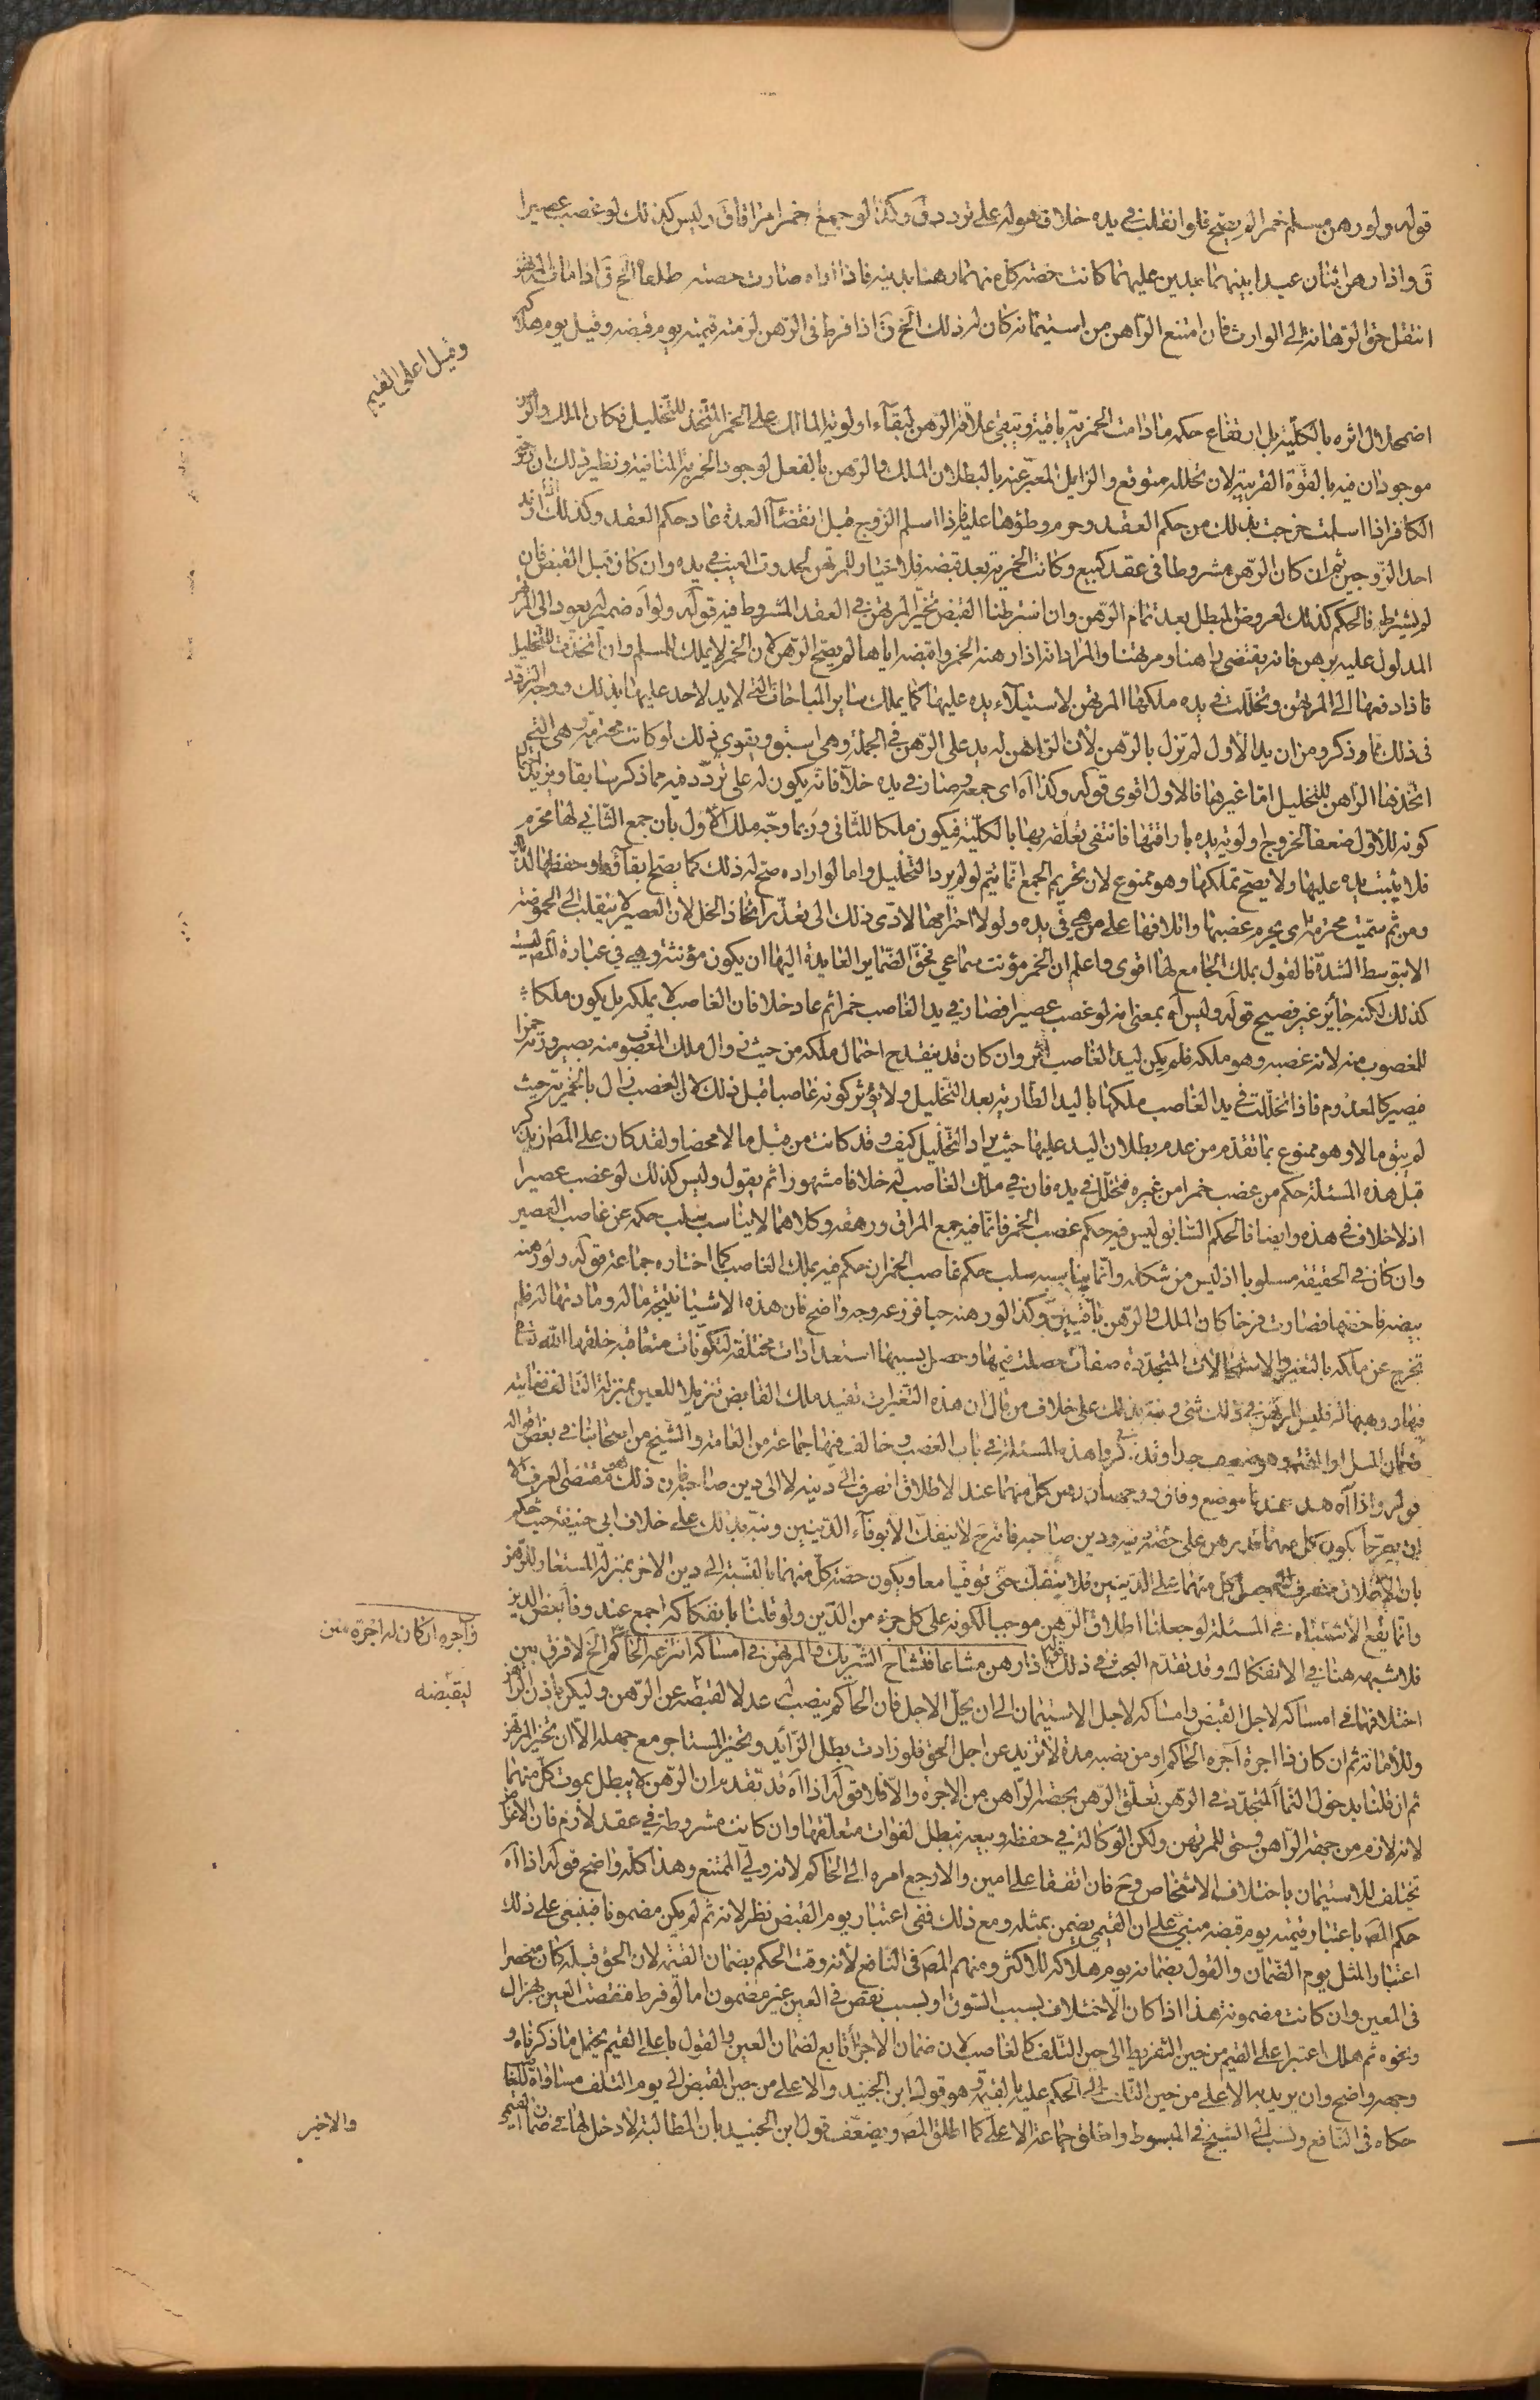 قوله ولو رهن مسلم خمرا لم يصح فلو انقلب في يده خلا فهو له على تردد ق وكذا لو جمع خمرا مراقا ق وليس كذلك لو غصب عصيرا
ق واذا رهن اثنان عبدا بينهما بدين عليهما كانت حصة كل منهما رهنا بدينه فاذا اداه صارت حصته طلقا الخ ق اذا مات المرتهن
انتقل حق الرهانة الى الوارث فان امتنع الراهن من استيمانه كان له ذلك الخ ق اذا فرط في الرهن لزمته قيمته يوم قبضه وقيل يوم هلاكه
وقيل اعلى القيم
اضمحلال اثره بالكلية بل ارتفاع حكمه ما دامت الخمرية باقية وتبقى علاقة الرهن لبقاء اولوية المالك على الخمر المتخذ للتخليل فكان الملك والرهن
موجودان فيه بالقوة القريبة لان تخلله متوقع والزايل المعبر عنه بالبطلان الملك والرهن بالفعل لوجود الخمرية المنافية ونظير ذلك ان زوجة
الكافر اذا اسلمت خرجت بذلك من حكم العقد وحرم وطؤها عليه فاذا اسلم الزوج قبل انقضاء العدة عاد حكم العقد وكذلك ارتداد
احد الزوجين ثم ان كان الرهن مشروطا في عقد كبيع وكانت الخمرية بعد قبضه فلا خيار للمرتهن لحدوث العيب في يده وان كان قبل القبض فان
لم نشترطه فالحكم كذلك لعروض المبطل بعد تمام الرهن وان اشترطنا القبض تخير المرتهن في العقد المشروط فيه قوله ولو آه ضمير له يعود الى المرتهن
المدلول عليه برهن فانه يقتضي راهنا ومرتهنا والمراد انه اذا رهنه الخمر واقبضه اياها لم يصح الرهن لان الخمر لا يملك للمسلم وان اتخذت للتخليل
فاذا دفعها الى المرتهن وتخللت في يده ملكها المرتهن لاستيلاء يده عليها كما يملك ساير المباحات التي لا يد لاحد عليها بذلك ووجه التردد
في ذلك مما ذكر ومن ان يد الاول لم تزل بالرهن لان الراهن له يد على الرهن في الجملة وهي اسبق ويقوى ذلك لو كانت محترمة وهي التي
اتخذها الراهن للتخليل اما غيرها فالاول اقوى قوله وكذا آه اي جمعه وصار في يده خلا فانه يكون له على تردد فيه مما ذكر سابقا ويزيد هنا
كونه للاول ضعفا لخروج اولوية يده باراقتها فانتفى تعلقه بها بالكلية فيكون ملكا للثاني وربما وجه ملك الاول بان جمع الثاني لها محرم
فلا يثبت يده عليها ولا يصح تملكها وهو ممنوع لان تحريم الجمع انما يتم لو لم يرد التخليل واما لو اراده صح له ذلك كما يصح ابقاؤها وحفظها لذلك
ومن ثم سميت محترمة اي يحرم غصبها واتلافها على من هي في يده ولولا احترامها لادى ذلك الى تعذر اتخاذ الخل لان العصير لا ينقلب الى الحموضة
الا بتوسط الشدة فالقول بملك الجامع لها اقوى واعلم ان الخمر مؤنث سماعي فحق الضماير العايدة اليها ان يكون مؤنثة وهي في عبارة المص ليست
كذلك لكنه جايز غير فصيح قوله وليس آه بمعنى انه لو غصب عصيرا فصار في يد الغاصب خمرا ثم عاد خلا فان الغاصب لا يملكه بل يكون ملكا
للمغصوب منه لانه غصبه وهو ملكه فلم يكن ليد الغاصب اثر وان كان قد ينقدح احتمال ملكه من حيث زوال ملك المغصوب منه بصيرورته خمرا
فيصير كالمعدوم فاذا تخللت في يد الغاصب ملكها باليد الطارية بعد التخليل ولا يؤثر كونه غاصبا قبل ذلك لان الغصب زال بالخمرية حيث
لم يبق مالا وهو ممنوع بما تقدم من عدم بطلان اليد عليها حيث يراد التخليل كيف وقد كانت من قبل مالا محضا ولقد كان على المص ان يذكر
قبل هذه المسئلة حكم من غصب خمرا من غيره فتخلل في يده فان في ملك الغاصب له خلافا مشهورا ثم يقول وليس كذلك لو غصب عصيرا
اذ لا خلاف في هذه وايضا فالحكم السابق ليس فيه حكم غصب الخمر فانما فيه جمع المراق ورهنه وكلاهما لا يناسب سلب حكمه عن غاصب العصير
وان كان في الحقيقة مسلوبا اذ ليس من شكله وانما يناسبه سلب حكم غاصب الخمر ان حكم فيه بملك الغاصب كما اختاره جماعة قوله ولو رهنه
بيضة فاحضنها فصارت فرخا كان الملك والرهن باقيين وكذا لو رهنه حبا فزرعه وجه واضح فان هذه الاشياء نتيجة ماله ومادتها له فلم
تخرج عن ملكه بالتغير والاستحالات المتجددة صفات حصلت فيها وحصل بسببها استعدادات مختلفة لتكونات متعاقبة خلقها الله تعالى
فيها ووهبها له فليس للمرتهن في ذلك شيء ونبه بذلك على خلاف من قال ان هذه التغيرات تفيد ملك القابض تنزيلا للعين بمنزلة التالف فغايته
ضمان المثل او القيمة وهو ضعيف جدا وقد ذكروا هذه المسئلة في باب الغصب وخالف فيها جماعة من العامة والشيخ من اصحابنا في بعض اقواله
قوله واذا آه هذا عندنا موضع وفاق ووجهه ان رهن كل منهما عند الاطلاق انصرف الى دينه لا الى دين صاحبه فان ذلك هو مقتضى العرف الا
ان يصرحا بكون كل منهما قد رهن على حصة دينه ودين صاحبه فانه ح لا ينفك الا بوفاء الدينين ونبه بذلك على خلاف ابي حنيفة حيث حكم
بان الاطلاق منصرف الى جعل كل منهما على الدينين فلا ينفك حتى توفيا معا ويكون حصة كل منهما بالنسبة الى دين الاخر بمنزلة المستعار للرهن
وانما يقع الاشتباه في المسئلة لو جعلنا اطلاق الرهن موجبا لكونه على كل جزء من الدين ولو قلنا بانفكاكه اجمع عند وفاء بعض الدين
فلا شبهه هنا في الانفكاك وقد تقدم البحث في ذلك قوله اذا رهن مشاعا فتشاح الشريك والمرتهن في امساكه انتزعه الحاكم الخ لا فرق بين
وآجره ان كان له اجرة متن
اختلافهما في امساكه لاجل القبض وامساكه لاجل الاستيمان الى ان يحل الاجل فان الحاكم ينصب له عدلا لقبضه عن الرهن وليكن باذن الراهن
ليقبضه
وللامانة ثم ان كان ذا اجرة آجره الحاكم او من نصبه مدة لا تزيد عن اجل الحق فلو زادت بطل الزائد وتخير المستاجر مع جهله الا ان يخير المرتهن
ثم ان قلنا بدخول النماء المتجدد في الرهن تعلق الرهن بحصة الراهن من الاجرة والا فلا قوله اذا آه قد تقدم ان الرهن لا يبطل بموت كل منهما
لانه لازم من جهة الراهن وحق للمرتهن ولكن الوكالة في حفظه وبيعه تبطل لفوات متعلقها وان كانت مشروطة في عقد لازم فان الاغراض
تختلف للاستيمان باختلاف الاشخاص وح فان اتفقا على امين والا رجع امره الى الحاكم لانه ولي الممتنع وهذا كله واضح قوله اذا آه
حكم المص باعتبار قيمته يوم قبضه مبني على ان القيمي يضمن بمثله ومع ذلك ففي اعتبار يوم القبض نظر لانه ثم لم يكن مضمونا فينبغي على ذلك
اعتبار المثل يوم الضمان والقول بضمانه يوم هلاكه للاكثر ومنهم المص في النافع لانه وقت الحكم بضمان القيمة لان الحق قبله كان منحصرا
في العين وان كانت مضمونة هذا اذا كان الاختلاف بسبب السوق او بسبب نقص في العين غير مضمون اما لو فرط فنقصت العين بهزال
ونحوه ثم هلك اعتبر اعلى القيم من حين التفريط الى حين التلف كالغاصب لان ضمان الاجزاء تابع لضمان العين والقول باعلى القيم يحتمل ما ذكرناه و
وجهه واضح وان يريد به الاعلى من حين التلف الى الحكم عليه بالقيمة وهو قول ابن الجنيد والاعلى من حين القبض الى يوم التلف مساواة للغاصب
حكاه في النافع ونسب الى الشيخ في المبسوط واطلق جماعة الاعلى كما اطلق المص ويضعف قول ابن الجنيد بان المطالبة لا دخل لها في ضمان القيمي
والاخير